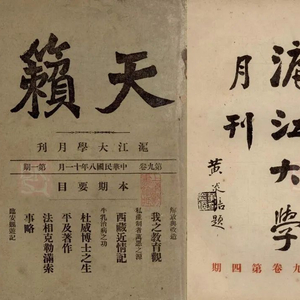 天籟
滬江大學月刊
第九卷 中華民國八年十一月 第一期
本期要目
我之教育觀
西藏近情記
牛乳治病之功
杜威博士之生
平及著作
法相克勒滿索
事略
滬江大學
月刊
黃炎培題
九卷第四期